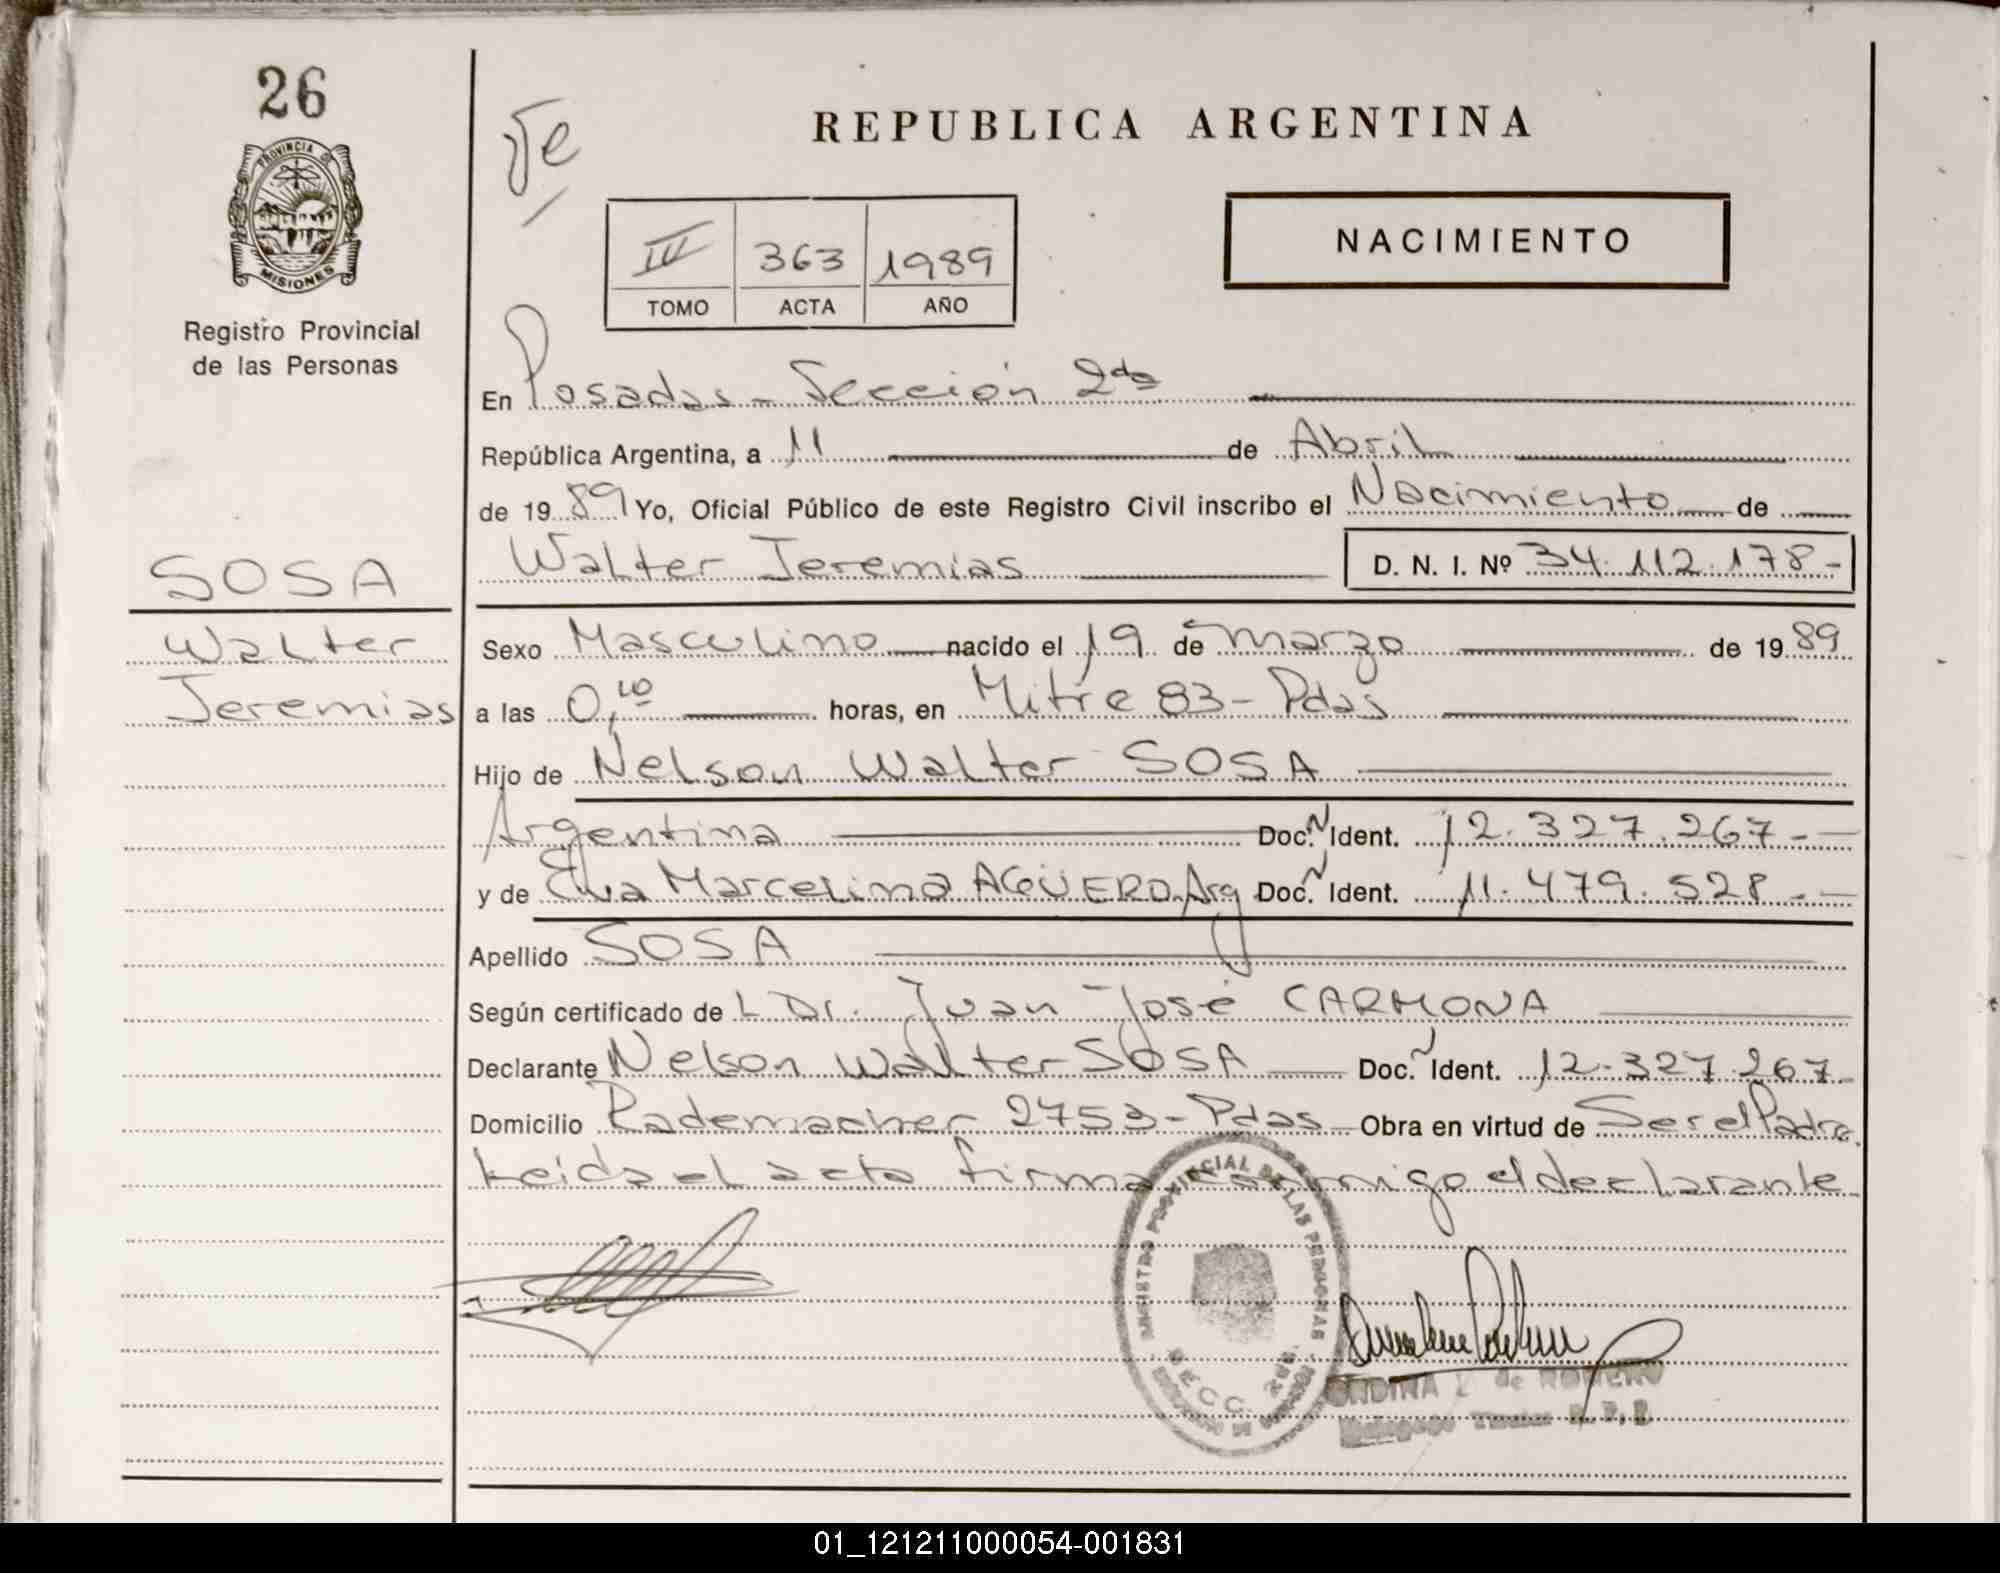 26
PROVINCIA DE
MISIONES
Registro Provincial
de las Personas
REPUBLICA ARGENTINA
NACIMIENTO
III 363 1989
TOMO ACTA AÑO
En Posadas - Sección 2da
República Argentina, a 11 de Abril
de 1989 Yo, Oficial Público de este Registro Civil inscribo el Nacimiento de
Walter Jeremias D. N. I. Nº 34.112.178-
SOSA
Walter
Jeremias
Sexo Masculino nacido el 19 de marzo de 1989
a las 0,10 horas, en Mitre 83 - Pdas
Hijo de Nelson Walter SOSA
Argentina Doc. N Ident. 12.327.267-
y de Elva Marcelina AGÜERO Arg Doc. N Ident. 11.479.528-
Apellido SOSA
Según certificado de L Dr. Juan José CARMONA
Declarante Nelson Walter SOSA Doc. N Ident. 12.327.267-
Domicilio Rademacher 2753 - Pdas Obra en virtud de Ser el Padre.
Leida el acta firma conmigo el declarante
PROVINCIAL DE LAS PERSONAS
SECC. 2da
de ROMERO
01_121211000054-001831